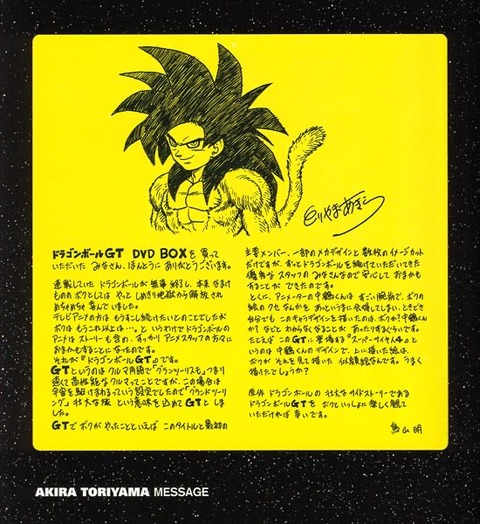 とりやまあきら
ドラゴンボールGT DVD BOXを買って
いただいた みなさん、ほんとうに ありがとうございます。
連載していた ドラゴンボールが 無事 終了し、本来 なまけ
ものの ボクとしては やっと しめきり地獄から 解放され
よろこんでいました。
テレビアニメの方は もうすこし続けたい とのことでしたが
ボクは もうこれ以上は…。というわけで ドラゴンボールの
アニメは ストーリーも含め、すっかり アニメスタッフの方々に
おまかせすることに なったのです。
それが『ドラゴンボールGT』です。
GTというのは クルマ用語で「グランツーリスモ」つまり
速くて 高性能な クルマってことですが、この場合は
宇宙を駆けまわるっていう設定でしたので「グランドツーリ
ング」壮大な旅 という意味を込めて GTと しま
した。
GTで ボクが やったことといえば このタイトルと最初の
主要メンバー、一部のメカデザインと 数枚の イメージカット
だけですが、ずっとドラゴンボールを続けていただいてきた
優秀な スタッフの みなさんなので 安心して おまかせ
することが できたのです。
とくに、アニメーターの中鶴くんは すごい腕前で、ボクの
絵のクセなんかを あっというまに会得してしまい、ときどき
自分でも このキャラデザインを描いたのは、ボクか?中鶴くん
か?などと わからなくなることが あったりするくらいです。
たとえば このGTに登場する“スーパーサイヤ人4”と
いうのは 中鶴くんの デザインで、上に描いた絵は、
ボクが それを見て描いた 似顔絵なんです。うまく
描けたでしょうか?
原作 ドラゴンボールの 壮大な サイドストーリーである
ドラゴンボールGTを ボクといっしょに 楽しく観て
いただければ 幸いです。
鳥山明
AKIRA TORIYAMA MESSAGE